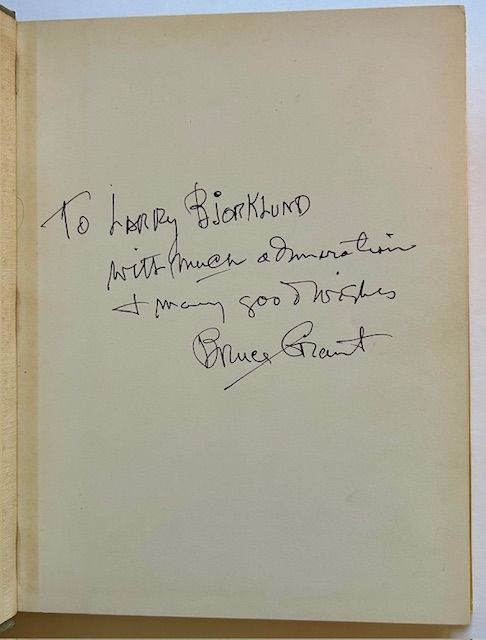 To Larry Bjorklund
with much admiration
+ many good wishes
Bruce Grant